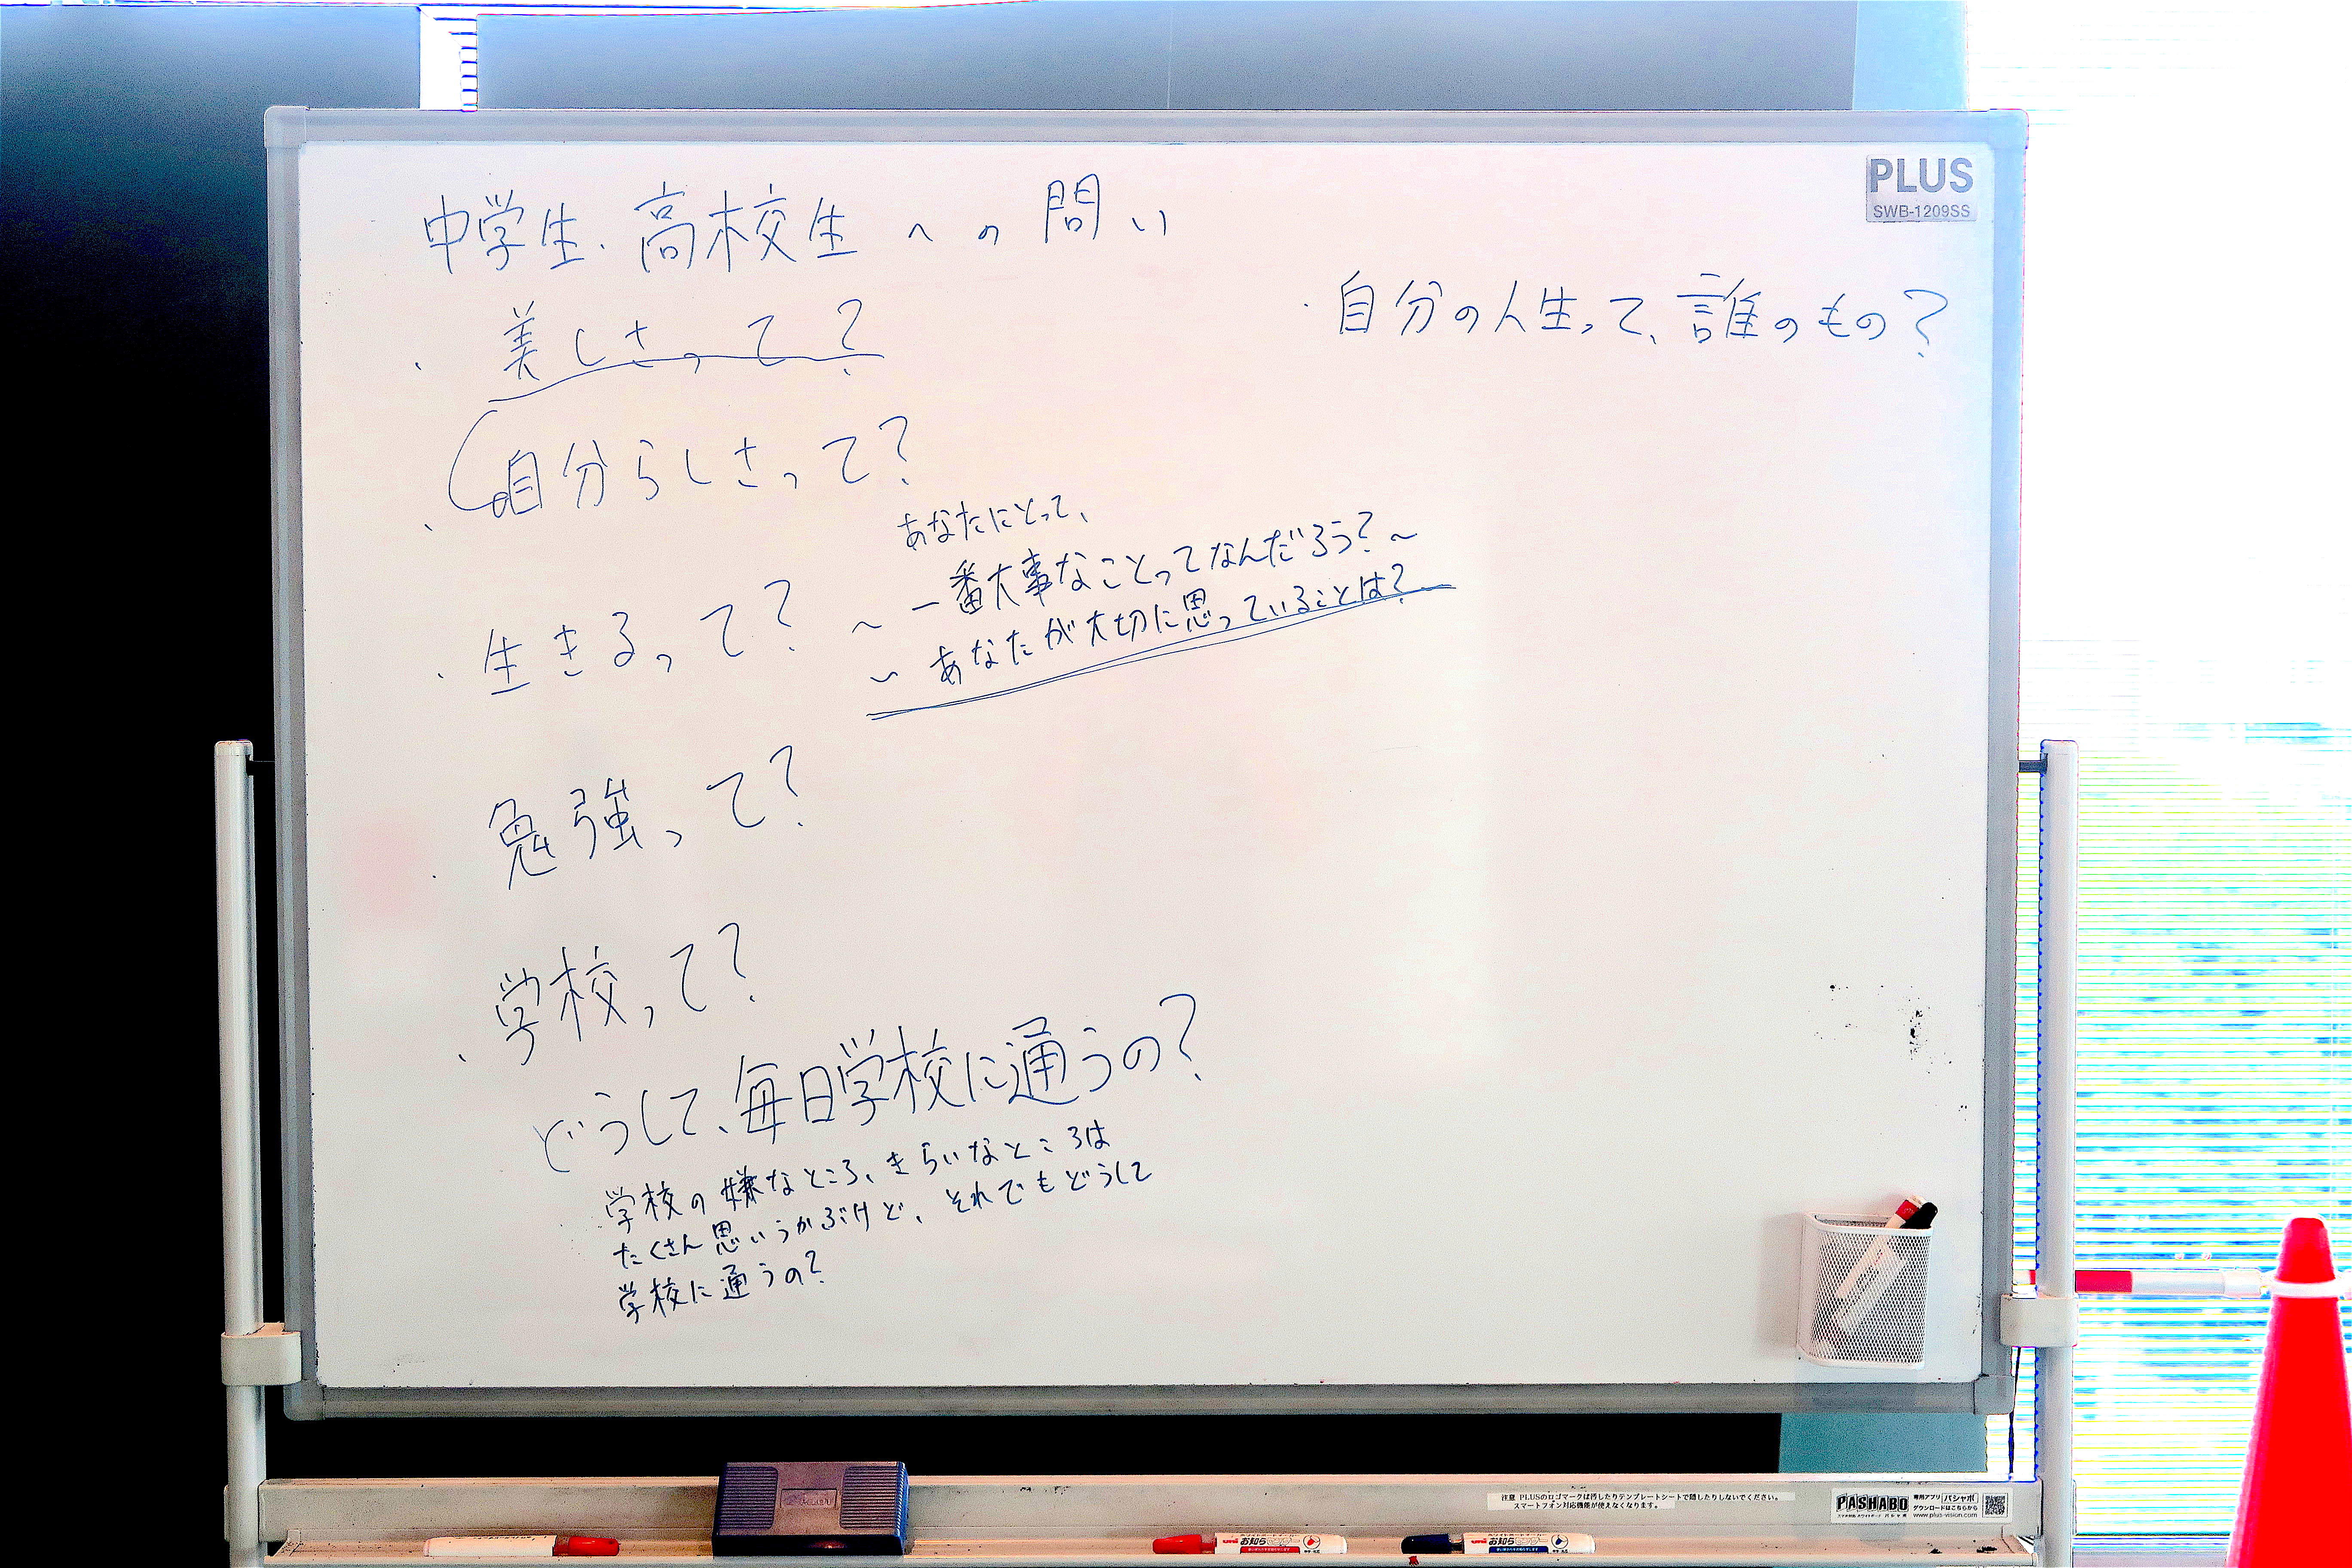 中学生・高校生への問い
・美しさって?
・自分らしさって?
・生きるって?
あなたにとって、
~一番大事なことってなんだろう?~
~あなたが大切に思っていることは?
・勉強って?
・学校って?
どうして、毎日学校に通うの?
学校の嫌なところ、きらいなところは
たくさん思いうかぶけど、それでもどうして
学校に通うの?
・自分の人生って、誰のもの?
PLUS
SWB-1209SS
注意 PLUSのロゴマークは汚したりテンプレートシートで隠したりしないでください。
スマートフォン対応機能が使えなくなります。
PASHABO
専用アプリ パシャボ
ダウンロードはこちらから
www.plus-vision.com
uni お知らせ
uni お知らせ